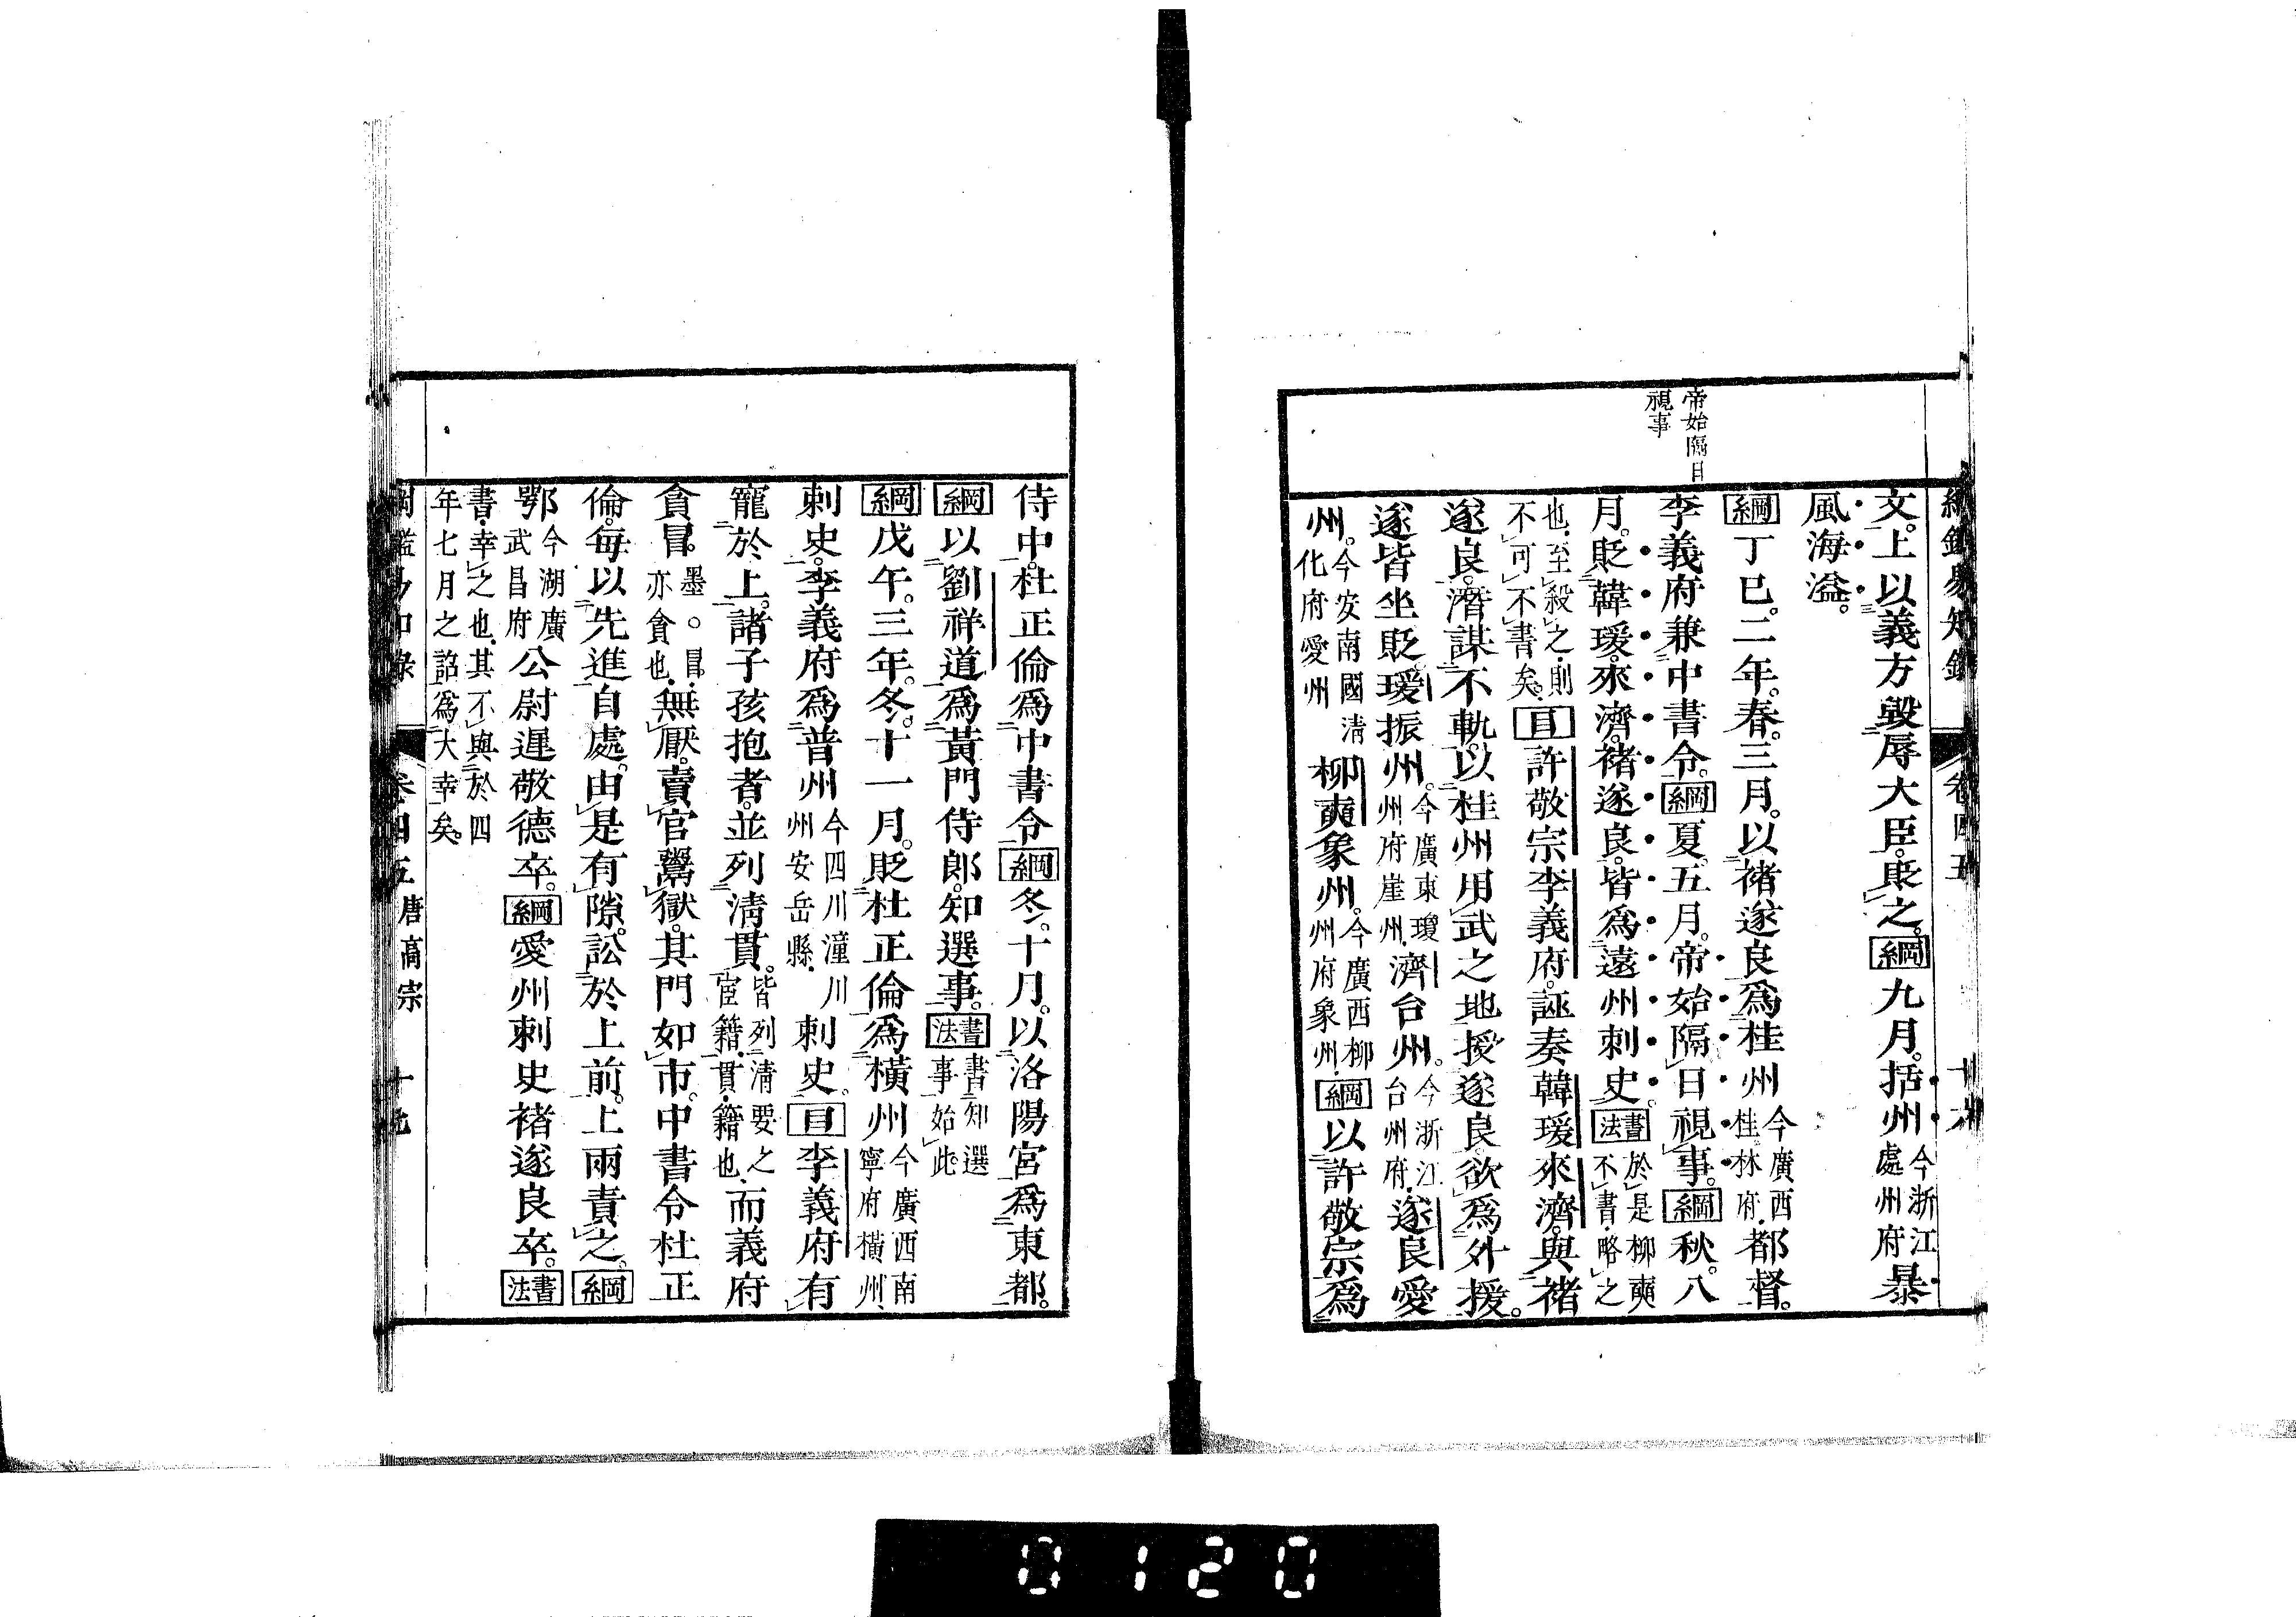 綱鑑易知錄 卷四五 十八
帝始隔日
視事
文。上以義方毀辱大臣。貶之。綱九月。括州今浙江處州府暴
風海溢。
綱丁巳。二年。春。三月。以褚遂良爲桂州今廣西桂林府。都督。
李義府兼中書令。綱夏。五月。帝始隔日視事。綱秋。八
月。貶韓瑗。來濟。褚遂良。皆爲遠州刺史。書法於是柳奭不書。略之
也。至殺之。則不可不書矣。目許敬宗李義府。誣奏韓瑗來濟。與褚
遂良。潛謀不軌。以桂州用武之地授遂良。欲爲外援。
遂皆坐貶。瑗振州。今廣東瓊州府崖州。濟台州。今浙江台州府。遂良愛
州。今安南國清化府愛州柳奭象州。今廣西柳州府象州。綱以許敬宗爲
侍中。杜正倫爲中書令。綱冬。十月。以洛陽宮爲東都。
綱以劉祥道爲黃門侍郎。知選事。書法書知選事始此。
綱戊午。三年。冬。十一月。貶杜正倫爲橫州今廣西南寧府橫州、
刺史。李義府爲普州今四川潼川州安岳縣。刺史。目李義府有
寵於上。諸子孩抱者。並列清貫。皆列清要之宦籍。貫。籍也。而義府
貪冒。墨。○冒。亦貪也。無厭。賣官鬻獄。其門如市。中書令杜正
倫。每以先進自處。由是有隙。訟於上前。上兩責之。綱
鄂今湖廣武昌府公尉遲敬德卒。綱愛州刺史褚遂良卒。書法
書。幸之也。其不與於四年七月之詔爲大幸矣。
綱鑑易知錄 卷四五 唐高宗 十九
0120